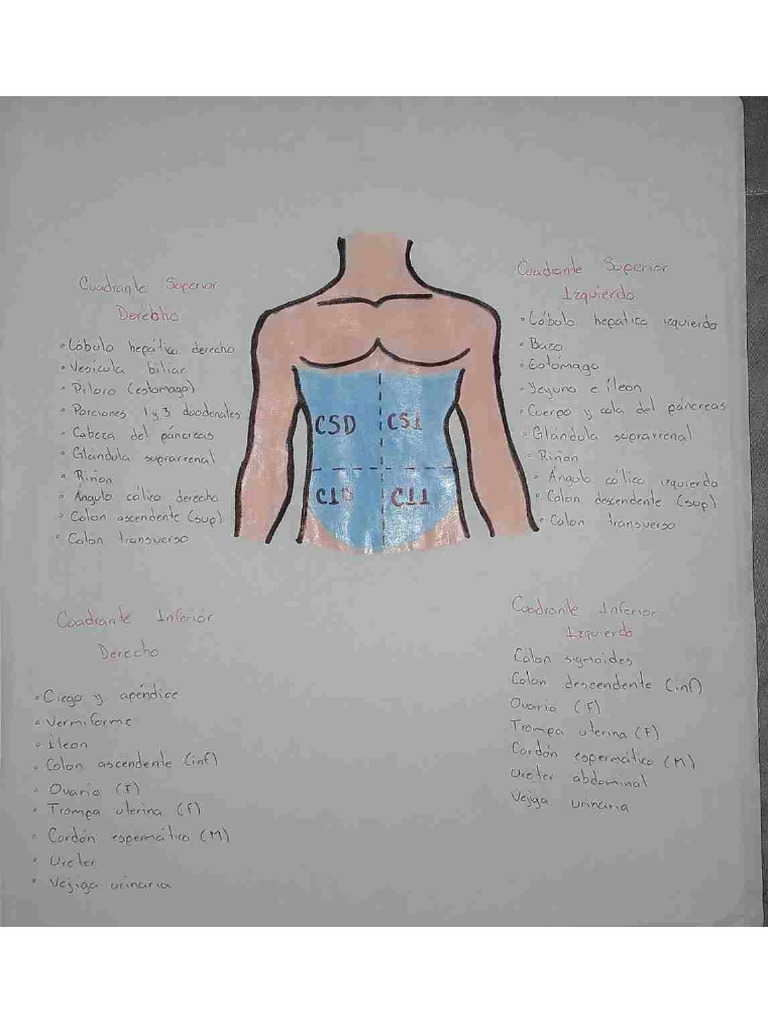 Cuadrante Superior
Derecho
• Lóbulo hepático derecho
• Vesícula biliar
• Píloro (estomago)
• Porciones 1 y 3 duodenales
• Cabeza del páncreas
• Glándula suprarrenal
• Riñon
• Ángulo cólico derecho
• Colon ascendente (sup)
• Colon transverso
CSD
CSI
CID
CII
Cuadrante Superior
Izquierdo
• Lóbulo hepático izquierdo
• Bazo
• Estómago
• Yeyuno e íleon
• Cuerpo y cola del páncreas
• Glándula suprarrenal
• Riñon
• Ángulo cólico izquierdo
• Colon descendente (sup)
• Colon transverso
Cuadrante Inferior
Derecho
• Ciego y apéndice
• vermiforme
• Íleon
• Colon ascendente (inf)
• Ovario (F)
• Trompa uterina (F)
• Cordón espermático (M)
• Ureter
• Vejiga urinaria
Cuadrante Inferior
Izquierdo
Colon sigmoides
Colon descendente (inf)
Ovario (F)
Trompa uterina (F)
Cordón espermático (M)
Ureter abdominal
Vejiga urinaria